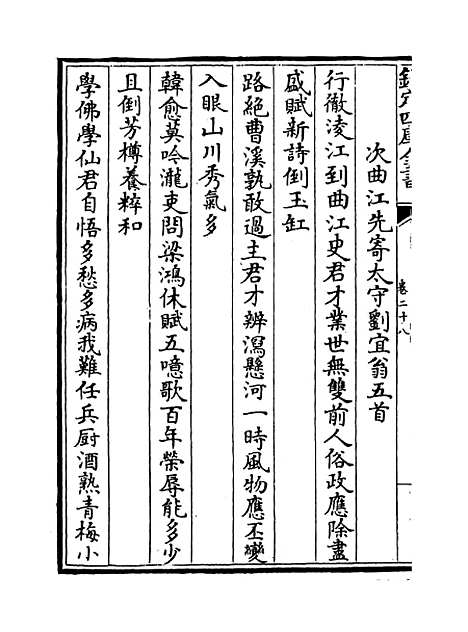 欽定四庫全書
卷二十八
次曲江先寄太守劉宜翁五首
行徹淩江到曲江史君才業世無雙前人俗政應除盡
盛賦新詩倒玉缸
路絶曹溪孰敢過主君才辨瀉懸河一時風物應丕變
入眼山川秀氣多
韓愈莫吟瀧吏問梁鴻休賦五噫歌百年榮辱能多少
且倒芳樽養粹和
學佛學仙君自悟多愁多病我難任兵厨酒熟青梅小